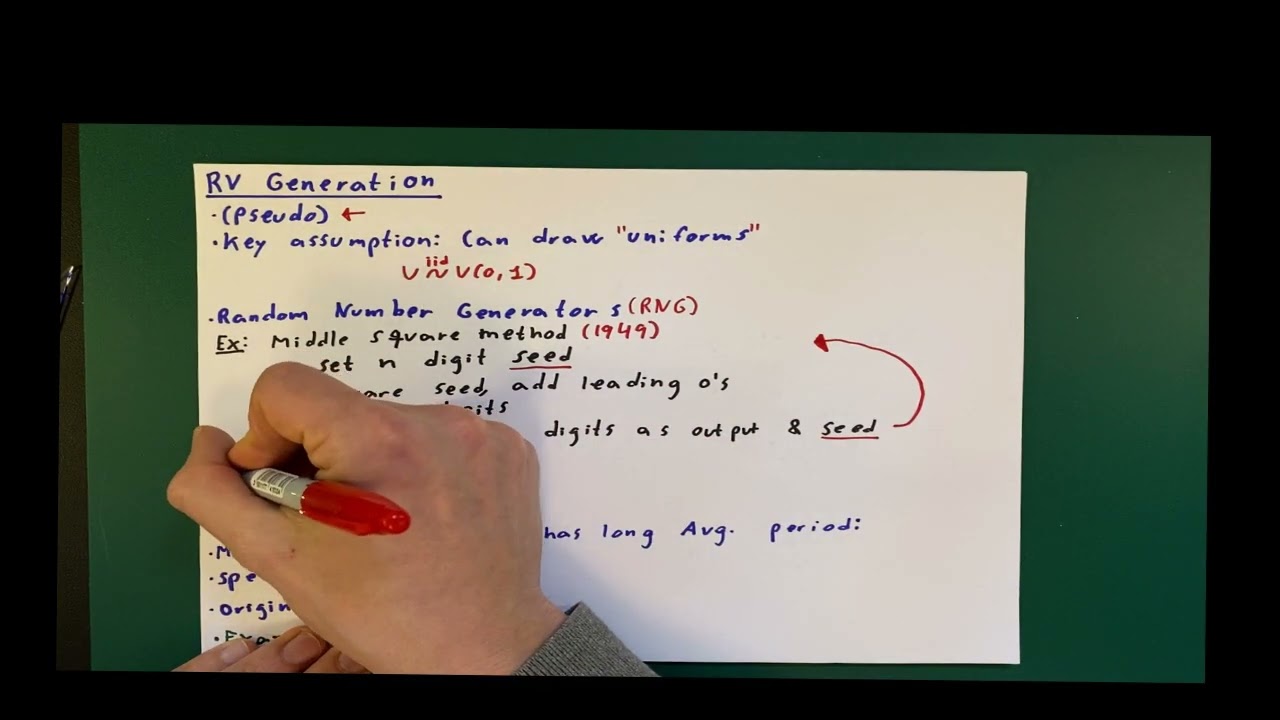 RV Generation
·(Pseudo) ←
·Key assumption: Can draw "uniforms"
U iid ~ U(0,1)
·Random Number Generators (RNG)
Ex: Middle square method (1949)
set n digit seed
seed, add leading 0's
digits as output & seed
has long Avg. period: